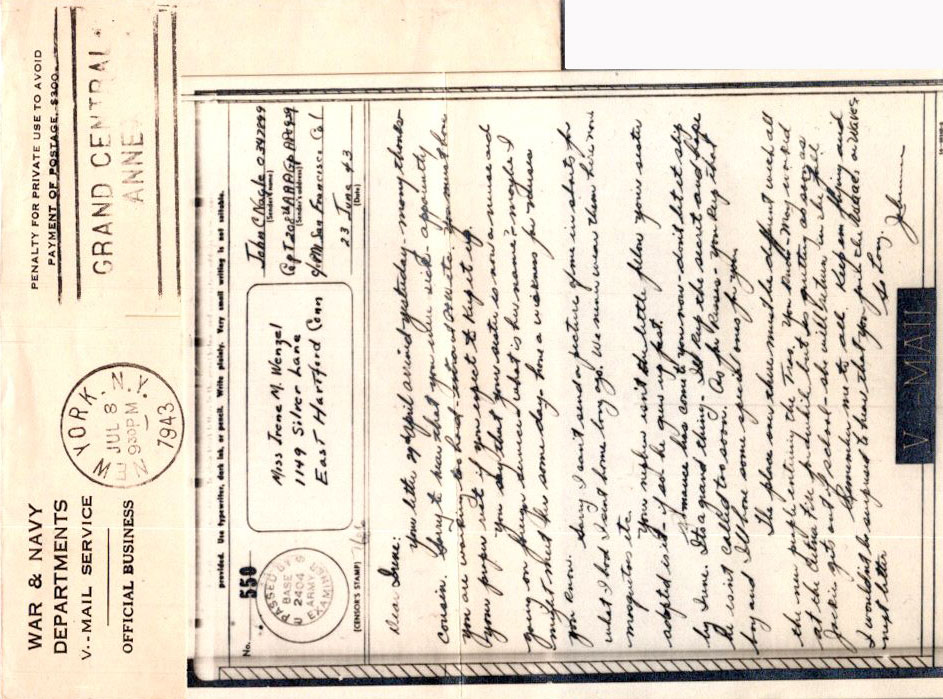 WAR & NAVY
DEPARTMENTS
V--MAIL SERVICE
OFFICIAL BUSINESS
NEW YORK, N.Y.
JUL 8
930PM
1943
PENALTY FOR PRIVATE USE TO AVOID
PAYMENT OF POSTAGE, $300.
GRAND CENTRAL
ANNEX
provided. Use typewriter, dark ink, or pencil. Write plainly. Very small writing is not suitable.
No. 550
PASSED BY
BASE
2404
ARMY
EXAMINER
(CENSOR'S STAMP)
Miss Irene M. Wenzel
1149 Silver Lane
East Hartford Conn
John C Nagle O397899
(Sender's name)
Capt 208th AAA Gp APO 929
(Sender's address)
c/o PM San Francisco Cal
23 June 43
(Date)
Dear Irene:
Your letter of April arrived yesterday - many thanks
cousin. Sorry to hear that you were sick - apparently
you are working too hard - slow down to a walk. You must have
your proper rest if you expect to keep it up.
You say that your sister is now a nurse and
going on foreign service, what is her name? - maybe I
might meet her some day - have a weakness for nurses
you know.
Sorry I can't send a picture of me in shorts for
what I had I sent home long ago. We never wear them here now
mosquitos etc.
Your nephew isn't the little fellow your sister
adopted is it - if so he grew up fast.
Romance has come to you now - don't let it slip
by Irene. It's a grand thing - I'll keep the secret and hope
he isn't called too soon. As for kisses - you keep that
boy and I'll have some special ones for you.
The place over there must be different with all
the new people entering the Trav. You and May worked
at the Aetna Fire for a while but is quitting as soon as
Jackie gets out of school - she will return in the fall
Remember me to all. Keep on flying and
I wouldn't be surprised to hear that you joined the
next letter. So long
John
V-MAIL